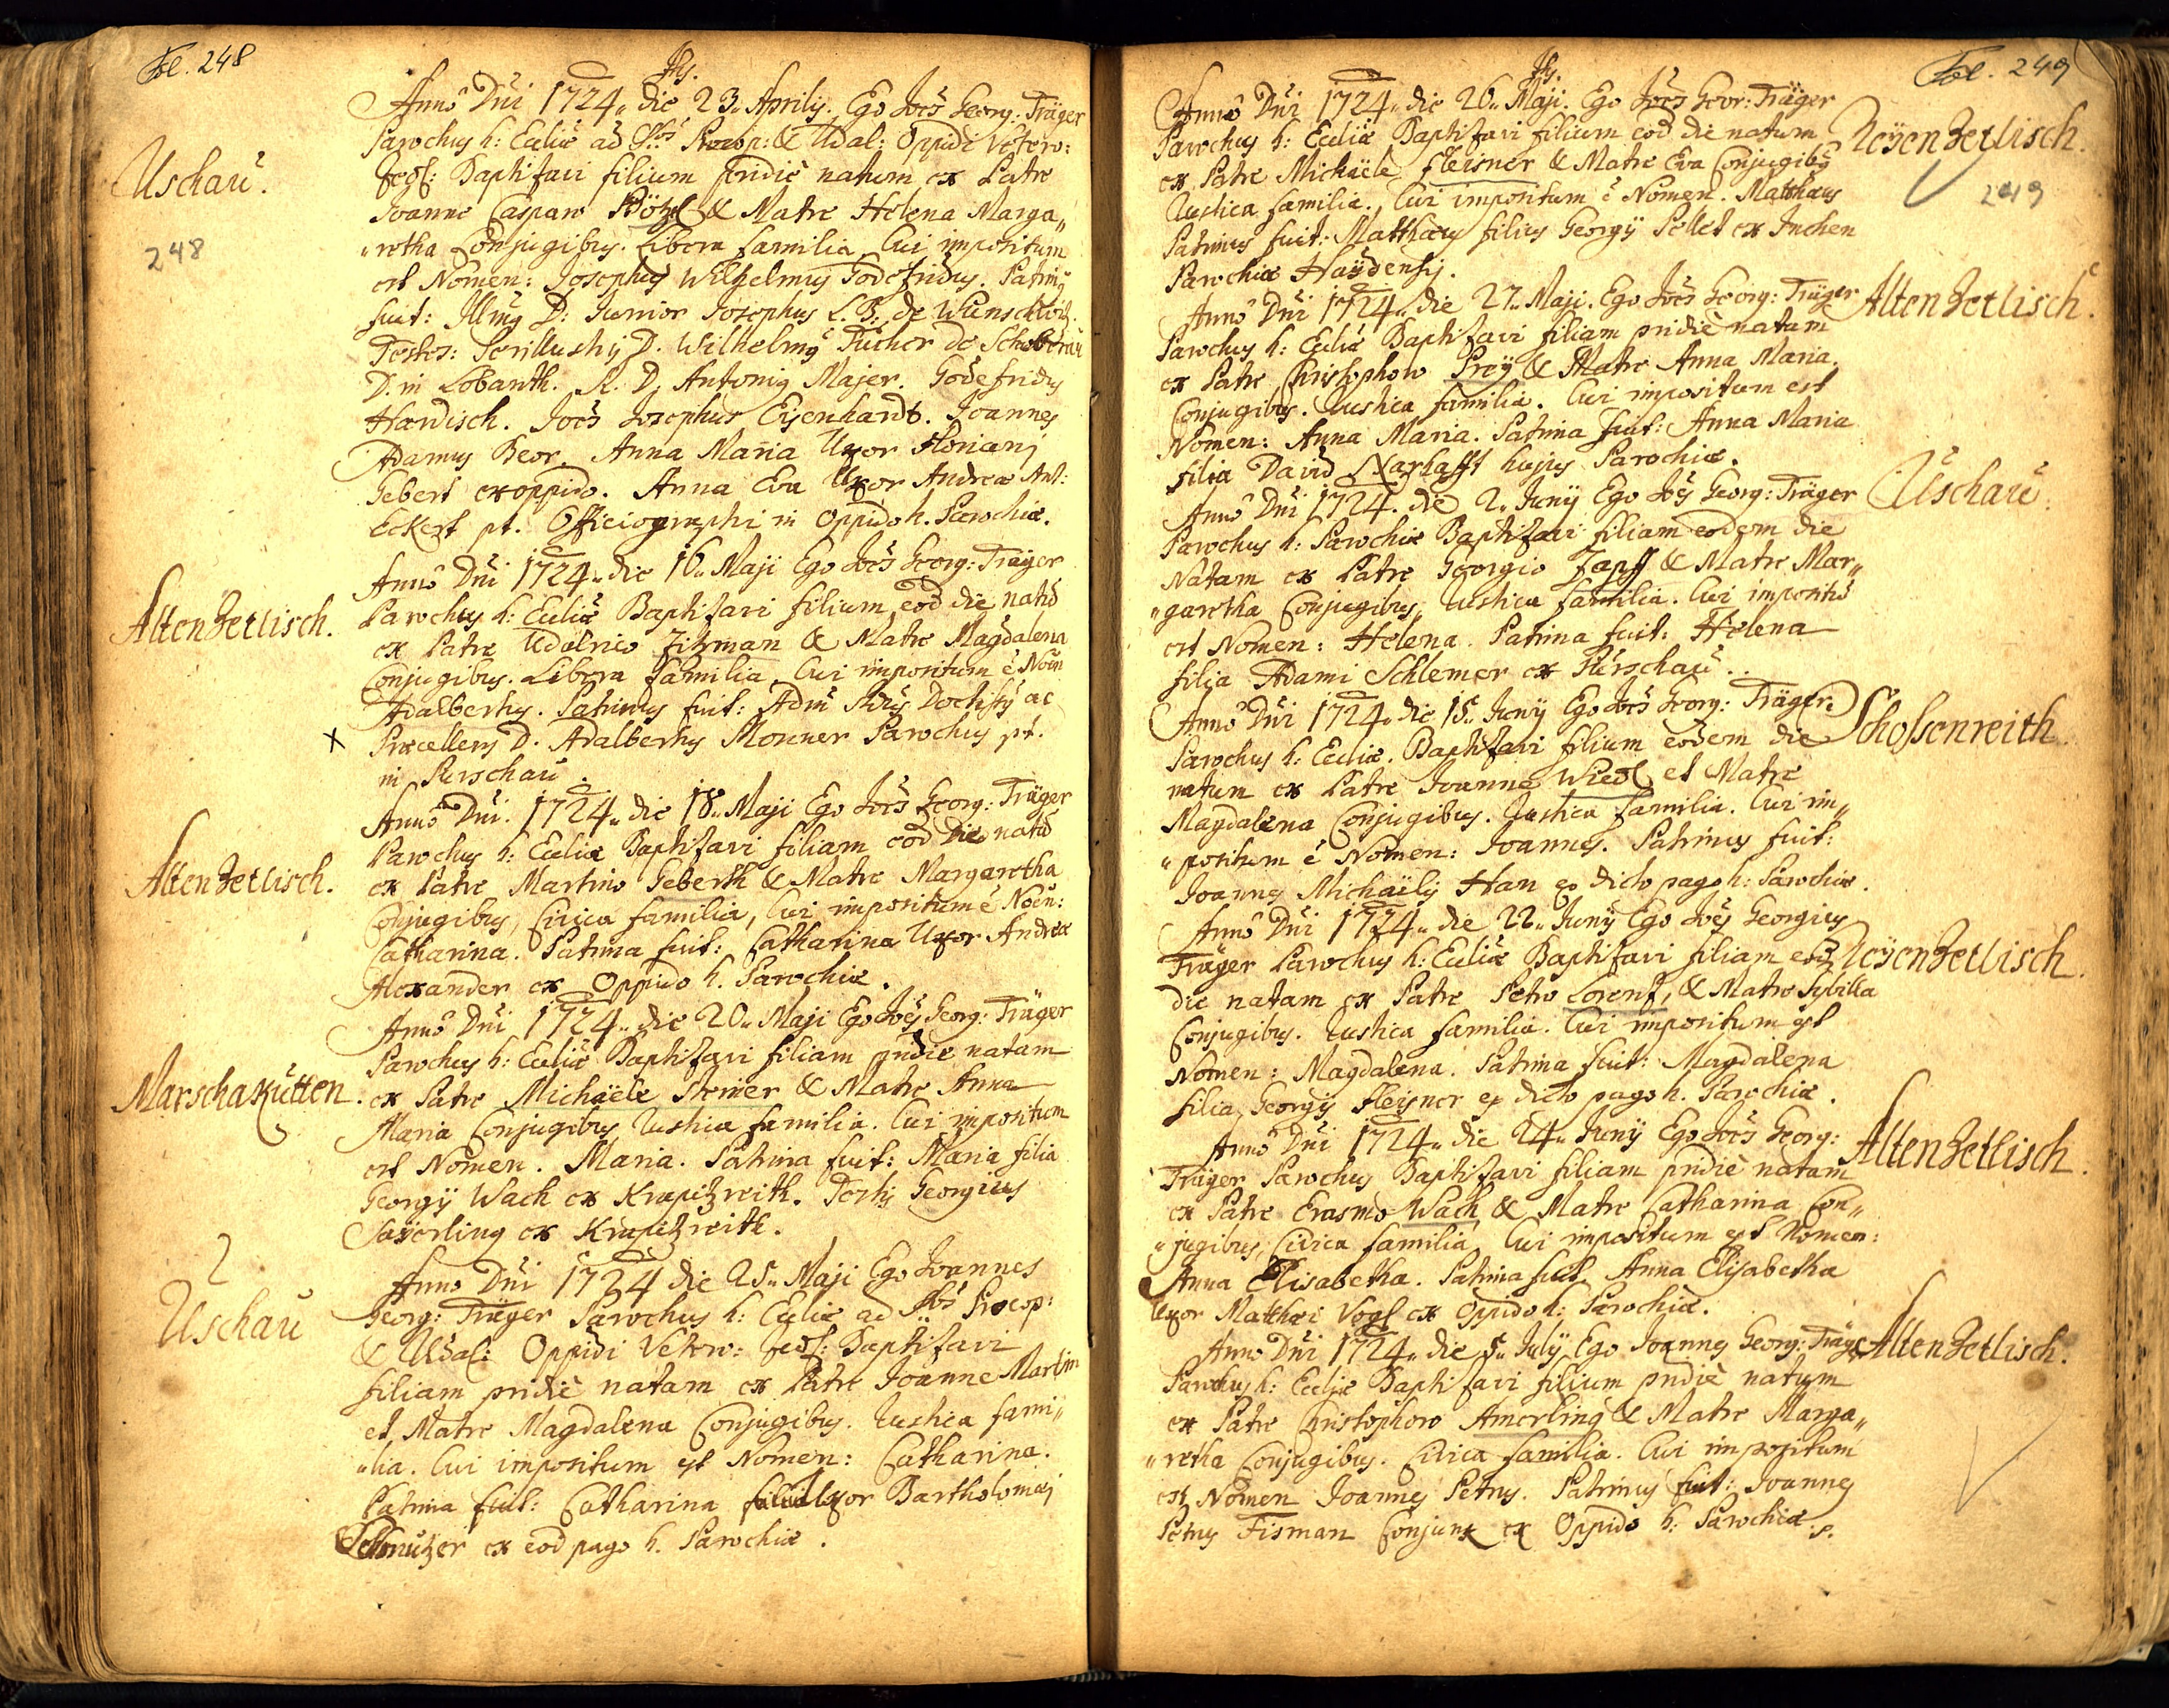 Fol. 248
Jhs.
Anno Dni 1724 die 23 Aprilis. Ego Joes Georg: Träger
Uschau.
Parochus h: Eccliæ ad Procop: & Udal: Oppidi Vetero:
Zedl: Baptisavi filium pridie natum ex Patre
Joanne Casparo & Matre Helena Marga„
248
„retha Conjugibus. Libera familia Cui impositum
est Nomen: Josephus Wilhelmus Godefridus. Patrinus
fuit: Illmus D: Junior Josephus L. B: de Wunschwitz.
Testes: D. Wilhelmus Tücher de Schoberau
D. in Lobanth. R. D. Antonius Majer. Godefridus
Hardisch. Joes Josephus Eisenhardt. Joannes
Adamus Beor. Anna Maria Uxor Floriani
Gebert ex oppido. Anna Eva Uxor Andreæ Ant:
Eckert pt. Officiographi in Oppido h. Parochiæ.
Anno Dni 1724 die 16 Maji Ego Joes Georg: Träger
AltenZetlisch.
Parochus h: Eccliæ Baptisavi filium eod die natu
ex Patre Udalrico Zitzman & Matre Magdalena
Conjugibus. Libera familia Cui impositum e Noen
Adalbertus. Patrinus fuit: Adm Rdus Doctiss ac
x Præcellens D. Adalbertus Monner Parochus pt.
in Purschau.
Anno Dni. 1724 die 18 Maji Ego Joes Georg: Träger
Parochus h: Eccliæ Baptisavi filiam eod die nata
AltenZetlisch.
ex Patre Martino Geberth & Matre Margaretha
Conjugibus, Civica familia, Cui impositum e Noen:
Catharina. Patrina fuit: Catharina Uxor Andreæ
Alexander ex Oppido h. Parochiæ.
Anno Dni 1724 die 20 Maji Ego Joes Georg: Träger
Parochus h: Eccliæ Baptisavi filiam pridie natam
Marschakutten.
ex Patre Michaële Steiner & Matre Anna
Maria Conjugibus Rustica familia. Cui impositum
est Nomen. Maria. Patrina fuit: Maria filia
Georgij Wach ex Krapitzreith. Testis Georgius
Saverling ex Krapitzreith.
Anno Dni 1724 die 25 Maji Ego Joannes
Uschau
Georg: Träger Parochus h: Eccliæ ad Procop:
& Udal: Oppidi Vetero: Zedl: Baptisavi
filiam pridie natam ex Patre Joanne Martin
et Matre Magdalena Conjugibus. Rustica fami„
„lia. Cui impositum est Nomen: Catharina.
Patrina fuit: Catharina Uxor Bartholomæi
Schmutzer ex eod pago h. Parochiæ.
Fol. 249
Jhs.
Anno Dni 1724 die 20 Maji. Ego Joes Geor: Träger
Parochus h: Eccliæ Baptisavi filium eod die natum
NeyenZetlisch.
ex Patre Michaële Fleisner & Matre Eva Conjugibus
Rustica familia. Cui impositum e Nomen. Matthæus
249
Patrinus fuit: Matthæus filius Georgij Pellet ex Inchen
Parochiæ Haydensis.
Anno Dni 1724 die 27 Maji. Ego Joes Georg: Träger
AltenZetlisch.
Parochus h: Eccliæ Baptisavi filiam pridie natam
ex Patre Christophoro Prey & Matre Anna Maria
Conjugibus. Rustica familia. Cui impositum est
Nomen: Anna Maria. Patrina fuit: Anna Maria
filia David Narhafft hujus Parochiæ.
Anno Dni 1724. die 2 Junij Ego Joes Georg: Träger
Uschau.
Parochus h: Parochiæ Baptisavi filiam eodem die
Natam ex Patre Georgio Zapff & Matre Mar„
„garetha Conjugibus, Rustica familia. Cui impositu
est Nomen: Helena. Patrina fuit: Helena
filia Adami Schlemer ex Purschau.
Anno Dni 1724 die 15 Junij Ego Joes Georg: Träger
Schossenreith.
Parochus h: Eccliæ. Baptisavi filium eodem die
natum ex Patre Joanne Wiedl et Matre
Magdalena Conjugibus. Rustica familia. Cui im„
„positum e Nomen: Joannes. Patrinus fuit:
Joannes Michaëlis Han ex dicto pago h: Parochiæ.
Anno Dni 1724 die 22 Junij Ego Joes Georgius
Träger Parochus h: Eccliæ Baptisavi filiam eod
NeyenZetlisch.
die natam ex Patre Petro Lorentz, & Matre Sybilla
Conjugibus. Rustica familia. Cui impositum est
Nomen: Magdalena. Patrina fuit: Magdalena
filia Georgij Fleisner ex dicto pago h. Parochiæ.
Anno Dni 1724 die 24 Junij Ego Joes Georg:
AltenZetlisch.
Träger Parochus Baptisavi filiam pridie natam
ex Patre Erasmo Wach & Matre Catharina Con„
„jugibus, Civica familia, Cui impositum est Nomen:
Anna Elisabetha. Patrina fuit Anna Elisabetha
Uxor Matthæi Vogl ex Oppido h: Parochiæ.
Anno Dni 1724 die 5 July Ego Joannes Georg: Träger
AltenZetlisch.
Parochus h: Eccliæ Baptisavi filium pridie natum
ex Patre Christophoro Amerling & Matre Marga„
„retha Conjugibus. Civica familia. Cui impositum
est Nomen Joannes Petrus. Patrinus fuit: Joannes
Petrus Fisman Conjunx ex Oppido h: Parochiæ.